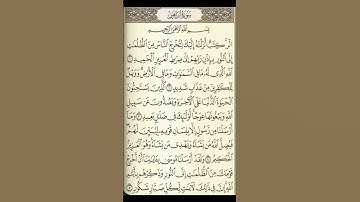 سُورَةُ إِبْرَاهِيمَ
بِسْمِ ٱللَّهِ ٱلرَّحْمَٰنِ ٱلرَّحِيمِ
الٓر ۚ كِتَٰبٌ أَنزَلْنَٰهُ إِلَيْكَ لِتُخْرِجَ ٱلنَّاسَ مِنَ ٱلظُّلُمَٰتِ
إِلَى ٱلنُّورِ بِإِذْنِ رَبِّهِمْ إِلَىٰ صِرَٰطِ ٱلْعَزِيزِ ٱلْحَمِيدِ ١
ٱللَّهِ ٱلَّذِى لَهُۥ مَا فِى ٱلسَّمَٰوَٰتِ وَمَا فِى ٱلْأَرْضِ ۗ وَوَيْلٌ
لِّلْكَٰفِرِينَ مِنْ عَذَابٍ شَدِيدٍ ٢ ٱلَّذِينَ يَسْتَحِبُّونَ
ٱلْحَيَوٰةَ ٱلدُّنْيَا عَلَى ٱلْءَاخِرَةِ وَيَصُدُّونَ عَن سَبِيلِ
ٱللَّهِ وَيَبْغُونَهَا عِوَجًا ۚ أُو۟لَٰٓئِكَ فِى ضَلَٰلٍۭ بَعِيدٍ ٣ وَمَآ
أَرْسَلْنَا مِن رَّسُولٍ إِلَّا بِلِسَانِ قَوْمِهِۦ لِيُبَيِّنَ لَهُمْ ۖ
فَيُضِلُّ ٱللَّهُ مَن يَشَآءُ وَيَهْدِى مَن يَشَآءُ ۚ وَهُوَ ٱلْعَزِيزُ
ٱلْحَكِيمُ ٤ وَلَقَدْ أَرْسَلْنَا مُوسَىٰ بِـَٔايَٰتِنَآ أَنْ أَخْرِجْ
قَوْمَكَ مِنَ ٱلظُّلُمَٰتِ إِلَى ٱلنُّورِ وَذَكِّرْهُم بِأَيَّىٰمِ
ٱللَّهِ ۚ إِنَّ فِى ذَٰلِكَ لَءَايَٰتٍ لِّكُلِّ صَبَّارٍ شَكُورٍ ٥